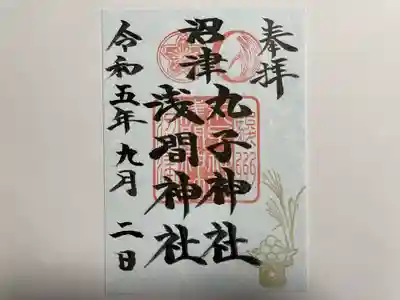 奉拝
沼津
丸子神社
浅間神社
令和五年九月二日